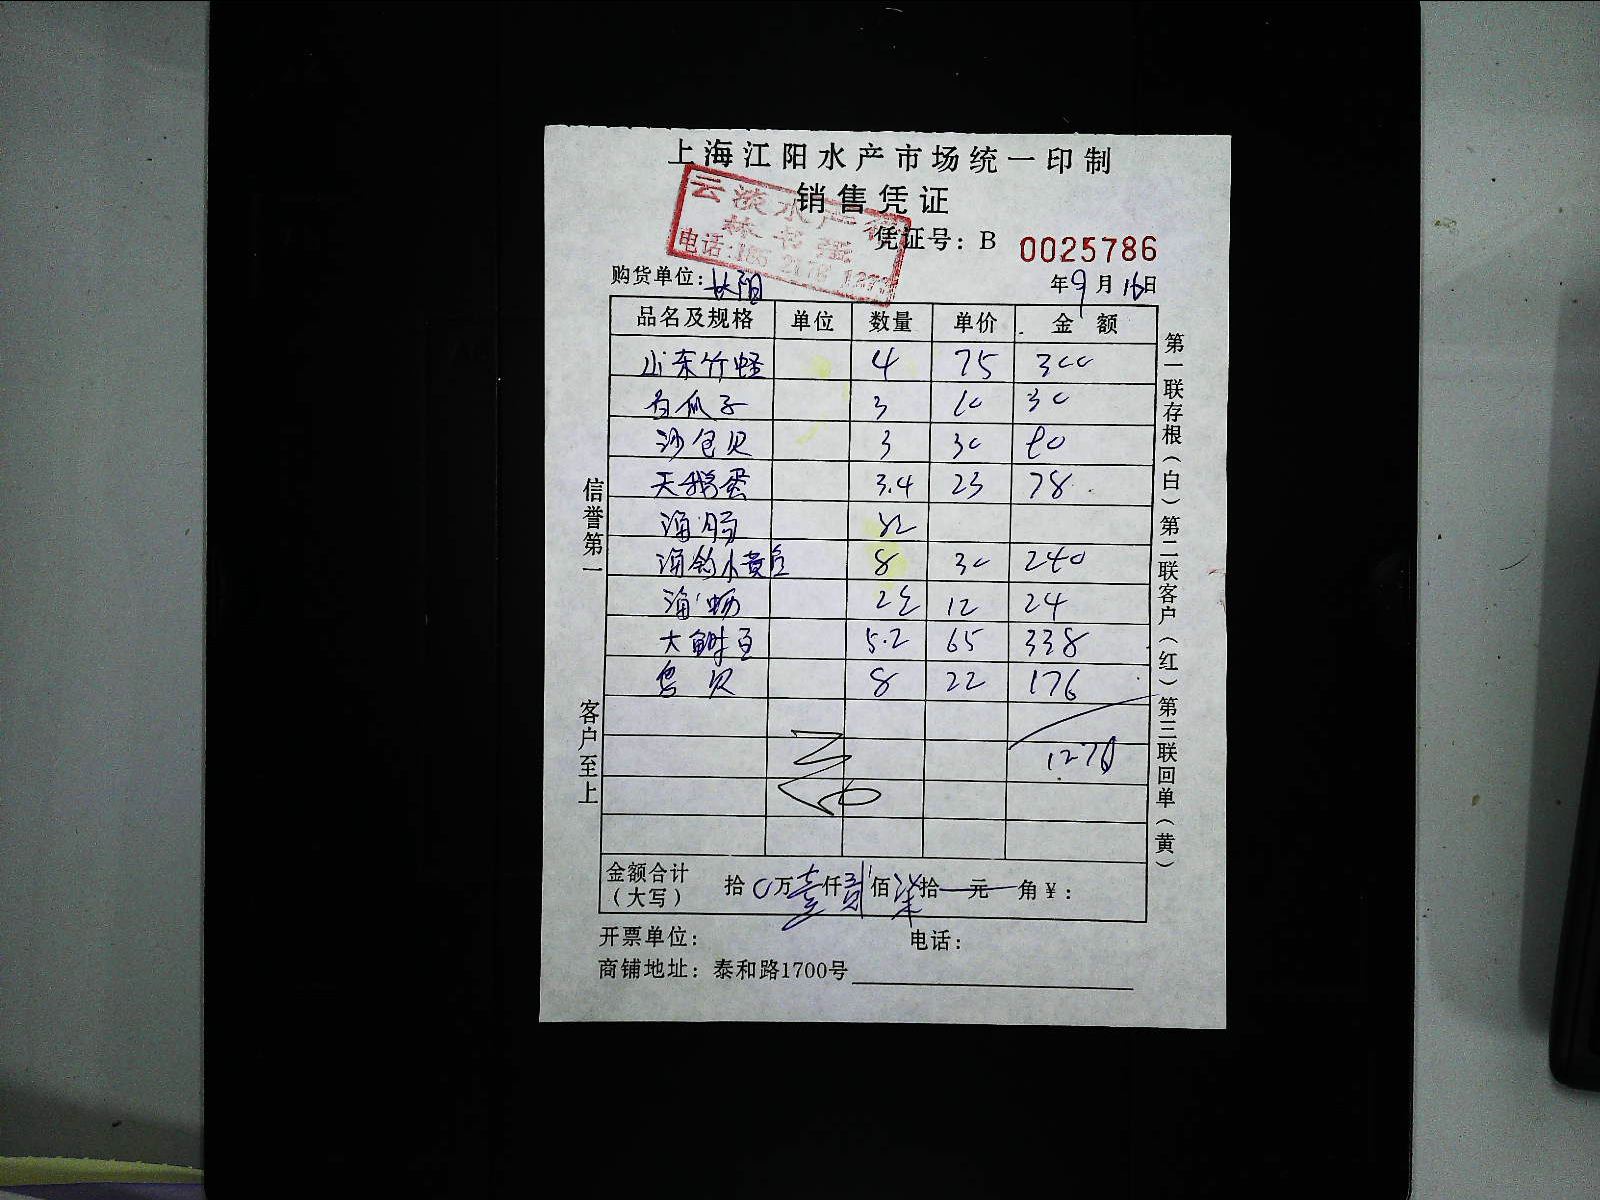 上海江阳水产市场统一印制
销售凭证
云淡水产行
林书
电话:
凭证号: B 0025786
购货单位: 长阳
年9月16日
品名及规格 单位 数量 单价 金额
山东竹蛏 4 75 300
白瓜子 3 10 30
沙包贝 3 30 90
天鹅蛋 3.4 23 78
海肠
海钓小黄鱼 8 30 240
海蛎 2 12 24
大鲜鱼 5.2 65 338
鸟贝 8 22 176
1276
金额合计
(大写) 拾0万壹仟贰佰柒拾一元 角¥:
开票单位: 电话:
商铺地址: 泰和路1700号
信誉第一
客户至上
第一联存根(白) 第二联客户(红) 第三联回单(黄)